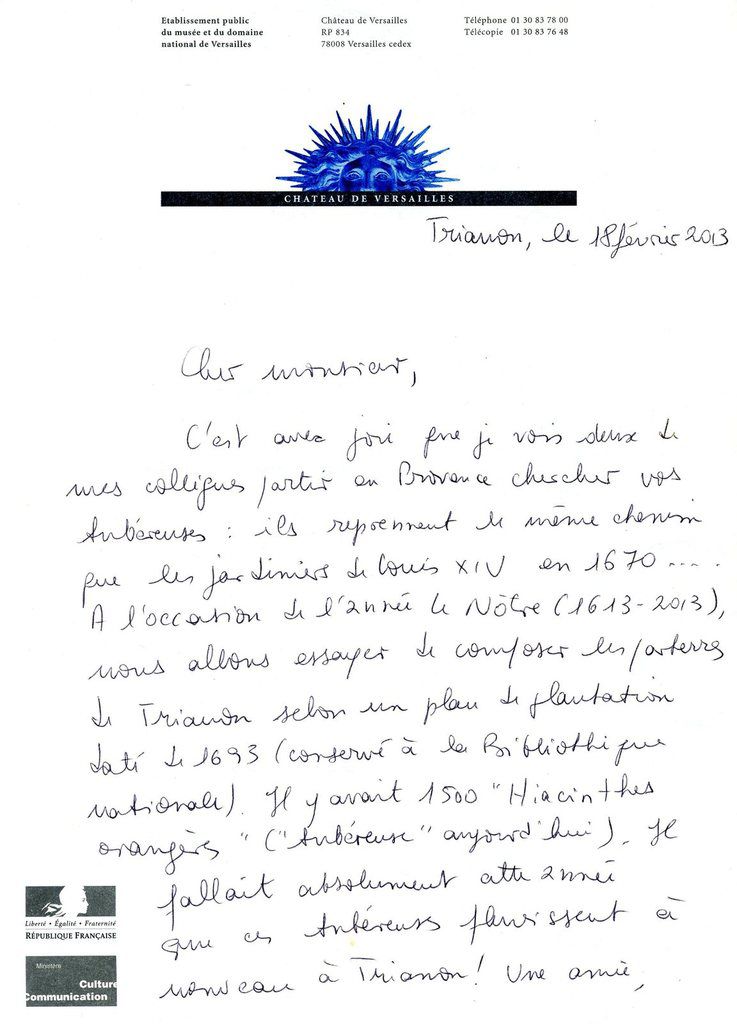 Etablissement public
du musée et du domaine
national de Versailles
Château de Versailles
RP 834
78008 Versailles cedex
Téléphone 01 30 83 78 00
Télécopie 01 30 83 76 48
CHATEAU DE VERSAILLES
Trianon, le 18 février 2013
Cher monsieur,
C'est avec joie que je vois deux de
mes collègues partir en Provence chercher vos
tubéreuses : ils reprennent le même chemin
que les jardiniers de Louis XIV en 1670 ....
A l'occasion de l'année Le Nôtre (1613-2013),
nous allons essayer de composer les parterres
de Trianon selon un plan de plantation
daté de 1693 (conservé à la Bibliothèque
nationale). Il y avait 1500 "Hiacinthes
orangères" ("tubéreuse" aujourd'hui). Il
fallait absolument cette année
que ces tubéreuses fleurissent à
nouveau à Trianon! Une amie,
Liberté • Égalité • Fraternité
RÉPUBLIQUE FRANÇAISE
Ministère
Culture
Communication